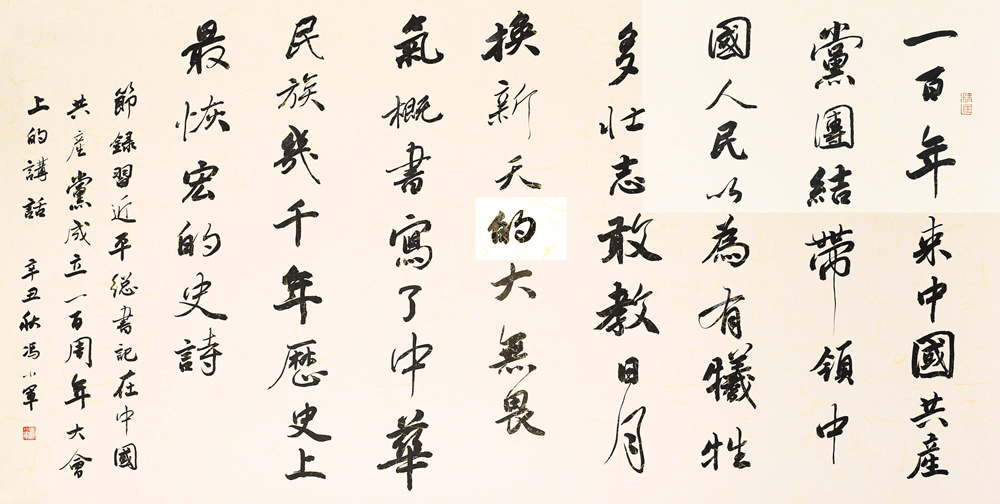 一百年来中國共產
黨團結帶領中
國人民以為有犧牲
多壮志敢教日月
换新天的大無畏
氣概書寫了中華
民族幾千年歷史上
最恢宏的史詩
節録習近平總書記在中國
共產黨成立一百周年大會
上的講話 辛丑秋馮小軍